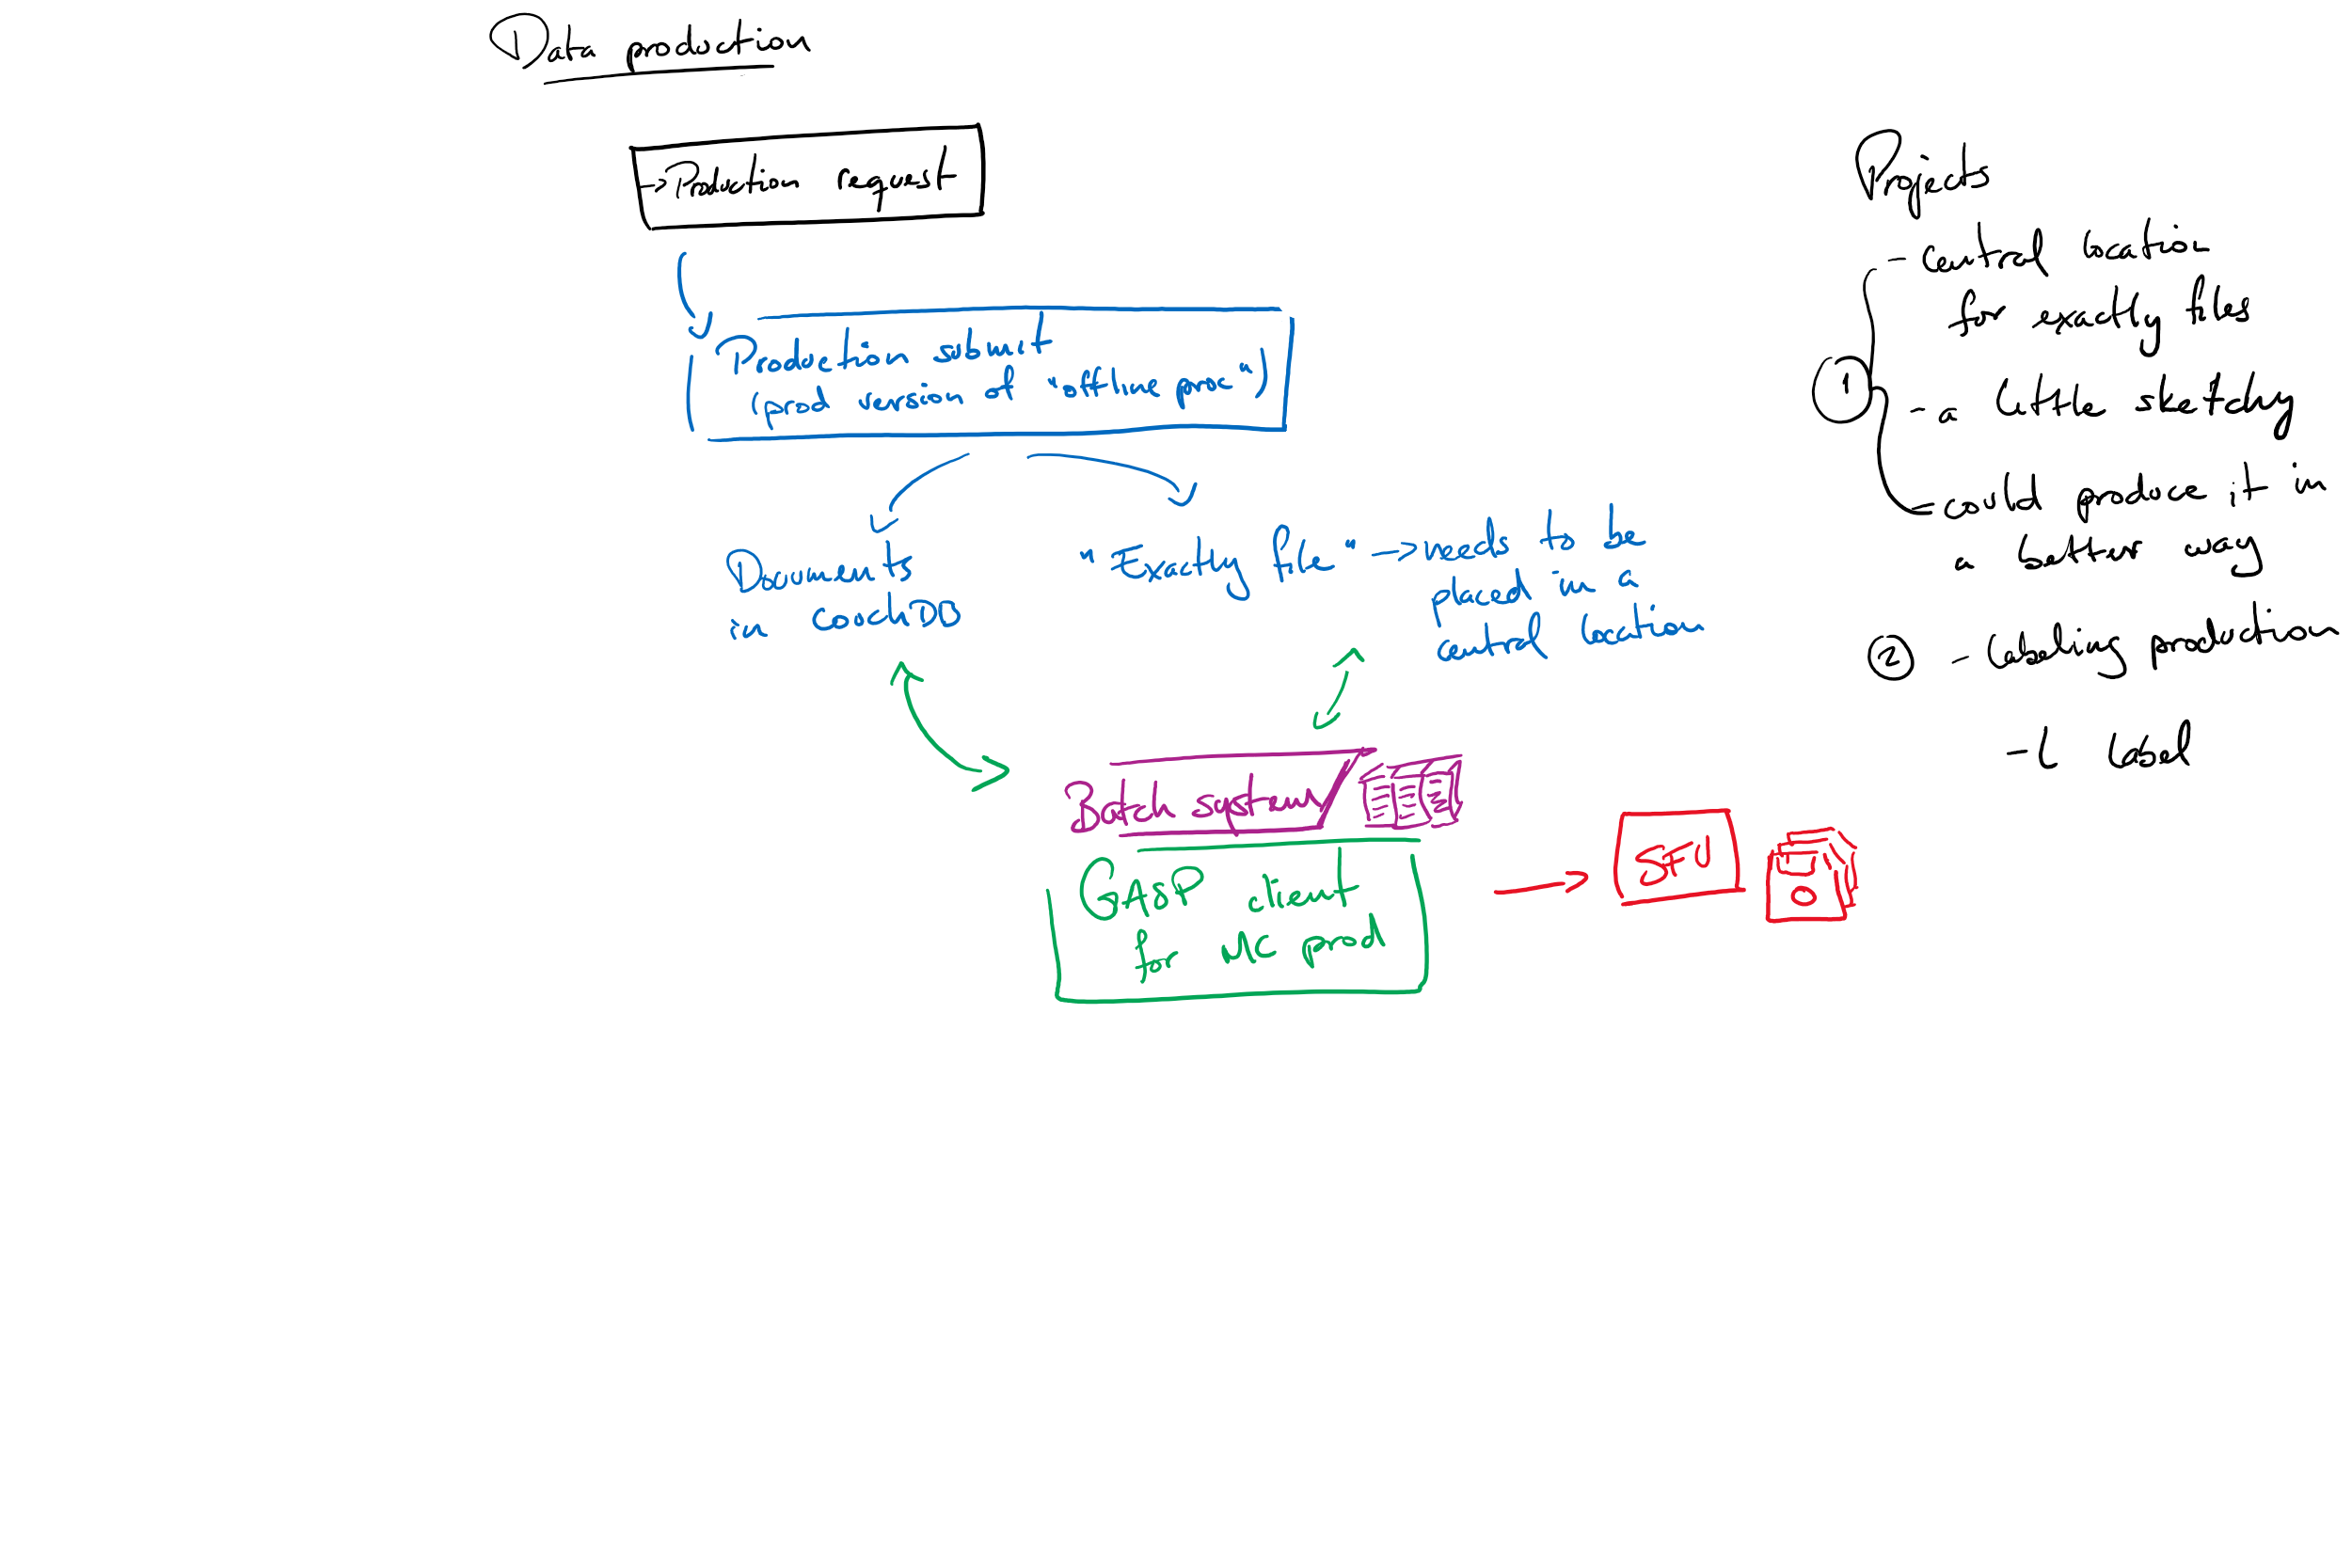 Data production
→ Production request
Production submit
(prod version of "offline proc")
Documents
in CouchDB
"Exactly file" → needs to be
placed in a
central location
Batch system
GASP client
for MC prod
SFU
Projects
- central location
for exactly files
① - a little sketchy
- could produce it in
a better way
② - labeling production
-L label